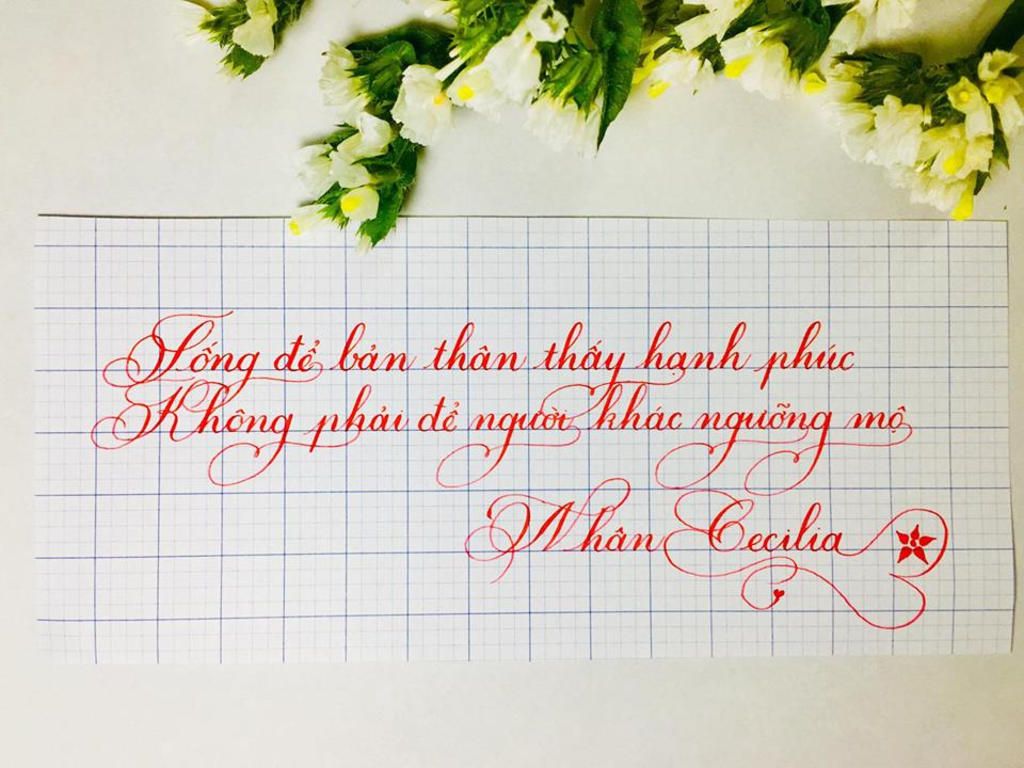 Sống để bản thân thấy hạnh phúc
Không phải để người khác ngưỡng mộ
Nhân Cecilia